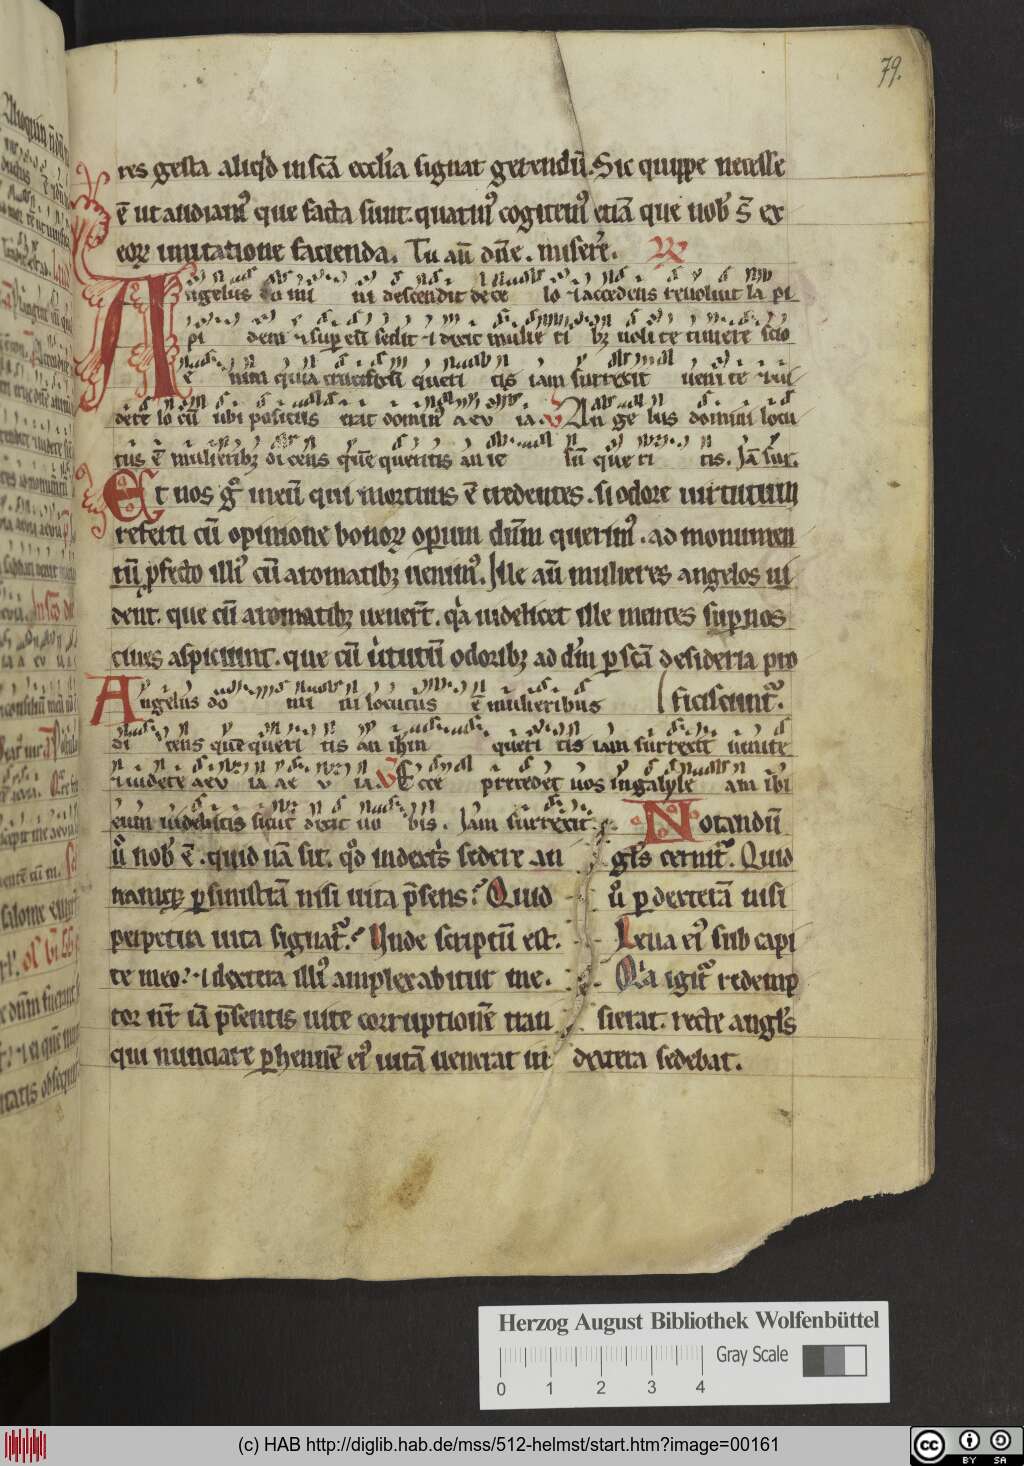 79.
res gesta aliqͥd in scā ecclīa signat gerendū. Sic quippe necesse
ē ut audiam᷒ que facta sunt. quatin᷒ cogitem᷒ etiā que nob̄ s̄ ex
eoꝝ imitatione facienda. Tu aū dn̄e. miserr̄e. R
Angelus do mi ni descendit de ce lo ⁊ accedens reuoluit la pi
pi dem ⁊ sup eū sedit ⁊ dixit mulie ri bꝫ noli te timere scio
e nim quia crucifixū queri tis iam surrexit ueni te ⁊ ui
dete locū ubi positus erat domin᷒ a eu ia. V An ge lus domini locu
tus ē mulieribꝫ di cens quē queritis an ie sū que ri tis. Jā sur.
Et nos gͦ in eū qui mortuus ē credentes. si odore uirtutum
referti cū opinione bonoꝝ oꝑum dn̄m querim᷒. ad monumen
tū ꝓfecto illi᷒ cū aromatibꝫ uenim᷒. Jlle aū mulieres angelos ui
dent. que cū aromatibꝫ uenert̄. qͥa uidelicet ille mentes suꝑnos
ciues aspiciunt. que cū uͥtutū odoribꝫ ad dn̄m ꝑ scā desideria pro
ficiscunt᷑.
Angelus do mi ni locutus ē mulieribus
di cens quē queri tis an ih̄m queri tis iam surrexit uenite
⁊ uidete aeu ia ae u ia. V Ecce precedet uos in galyle am ibi
eum uidebitis sicut dixit uo bis. Jam surrexit. Notandū
uͦ nob̄ ē. quid nā sit. qd̄ in dextͥs sedere an gl̄s cernit᷑. Quid
namqꝫ ꝑ sinistrā nisi uita p̄sens? Quid uͦ ꝑ dexterā nisi
perpetua uita signat᷑? Unde scriptū est. Leua ei᷒ sub capi
te meo. ⁊ dextera illi᷒ amplexabitur me. Qͥa igit᷑ redemp
tor nr̄ iā p̄sentis uite corruptionē tran sierat. recte angl̄s
qui nunciare ꝑhennē ei᷒ uitā uenerat in dextera sedebat.
Herzog August Bibliothek Wolfenbüttel
Gray Scale
0 1 2 3 4
(c) HAB http://diglib.hab.de/mss/512-helmst/start.htm?image=00161
cc BY SA